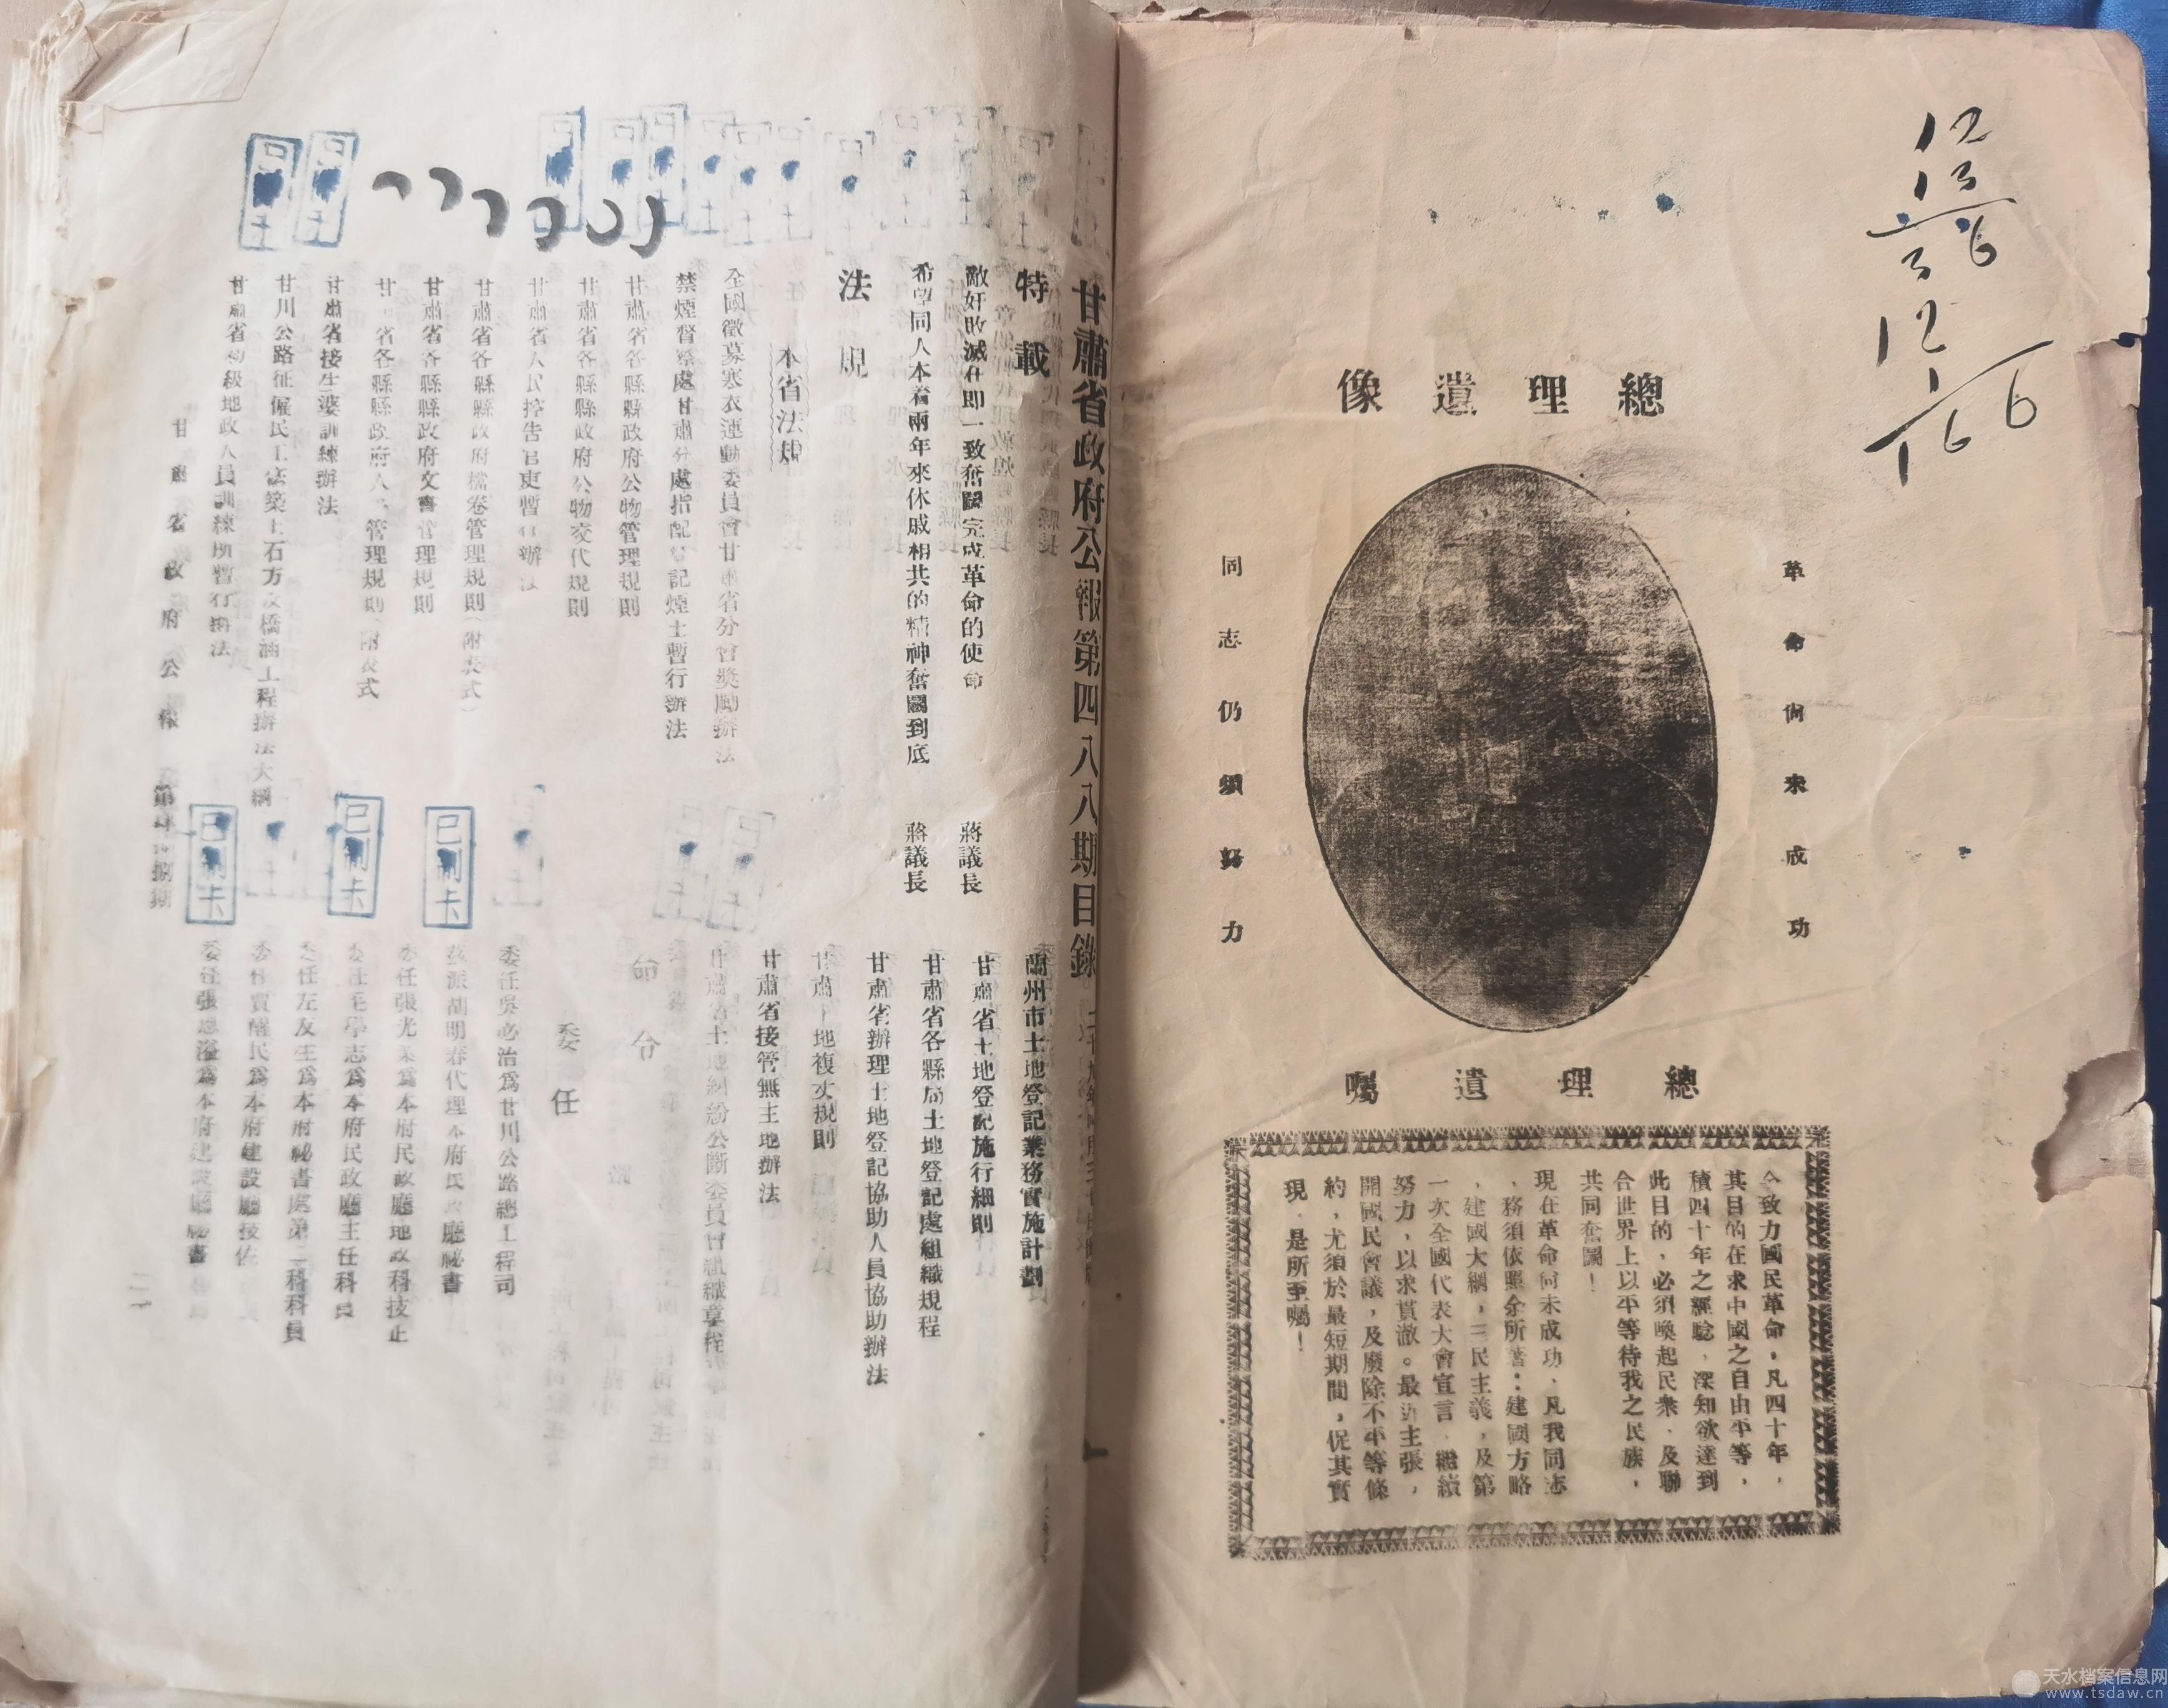 12
13
36
12
12
166
總理遺像
革命尚未成功
同志仍須努力
總理遺囑
余致力國民革命,凡四十年,
其目的在求中國之自由平等,
積四十年之經驗,深知欲達到
此目的,必須喚起民衆,及聯
合世界上以平等待我之民族,
共同奮鬭!
現在革命尚未成功、凡我同志
,務須依照余所著:建國方略
,建國大綱,三民主義,及第
一次全國代表大會宣言,繼續
努力,以求貫澈。最近主張,
開國民會議,及廢除不平等條
約,尤須於最短期間,促其實
現,是所至囑!
甘肅省政府公報第四八八期目錄
特載
敵奸敗滅在即一致奮鬭完成革命的使命 蔣議長
希望同人本着兩年來休戚相共的精神奮鬭到底 蔣議長
法規
本省法規
全國徵募寒衣運動委員會甘肅省分會獎勵辦法
禁煙督察處甘肅分處指配登記煙土暫行辦法
甘肅省各縣縣政府公物管理規則
甘肅省各縣縣政府公物交代規則
甘肅省人民控告官吏暫行辦法
甘肅省各縣縣政府檔卷管理規則(附表式)
甘肅省各縣縣政府文書管理規則
甘肅省各縣縣政府人事管理規則(附表式
甘肅省接生婆訓練辦法
甘川公路征僱民工築土石方及橋涵工程辦法大綱
甘肅省初級地政人員訓練所暫行辦法
蘭州市土地登記業務實施計劃
甘肅省土地登記施行細則
甘肅省各縣局土地登記處組織規程
甘肅省辦理土地登記協助人員協助辦法
甘肅土地複丈規則
甘肅省接管無主地辦法
甘肅省土地糾紛公斷委員會組織章程
命令
委任
委任吳必治爲甘川公路總工程司
茲派胡明春代理本府民政廳秘書
委任張光業爲本府民政廳地政科技正
委任毛學志爲本府民政廳主任科員
委任左友生爲本府秘書處第二科科員
委任賈醒民爲本府建設廳技佐
委任張溢爲本府建設廳秘書
甘肅省政府公報 第期
二
已制卡
已制卡
已制卡
天水档案信息网
www.tsdaw.cn